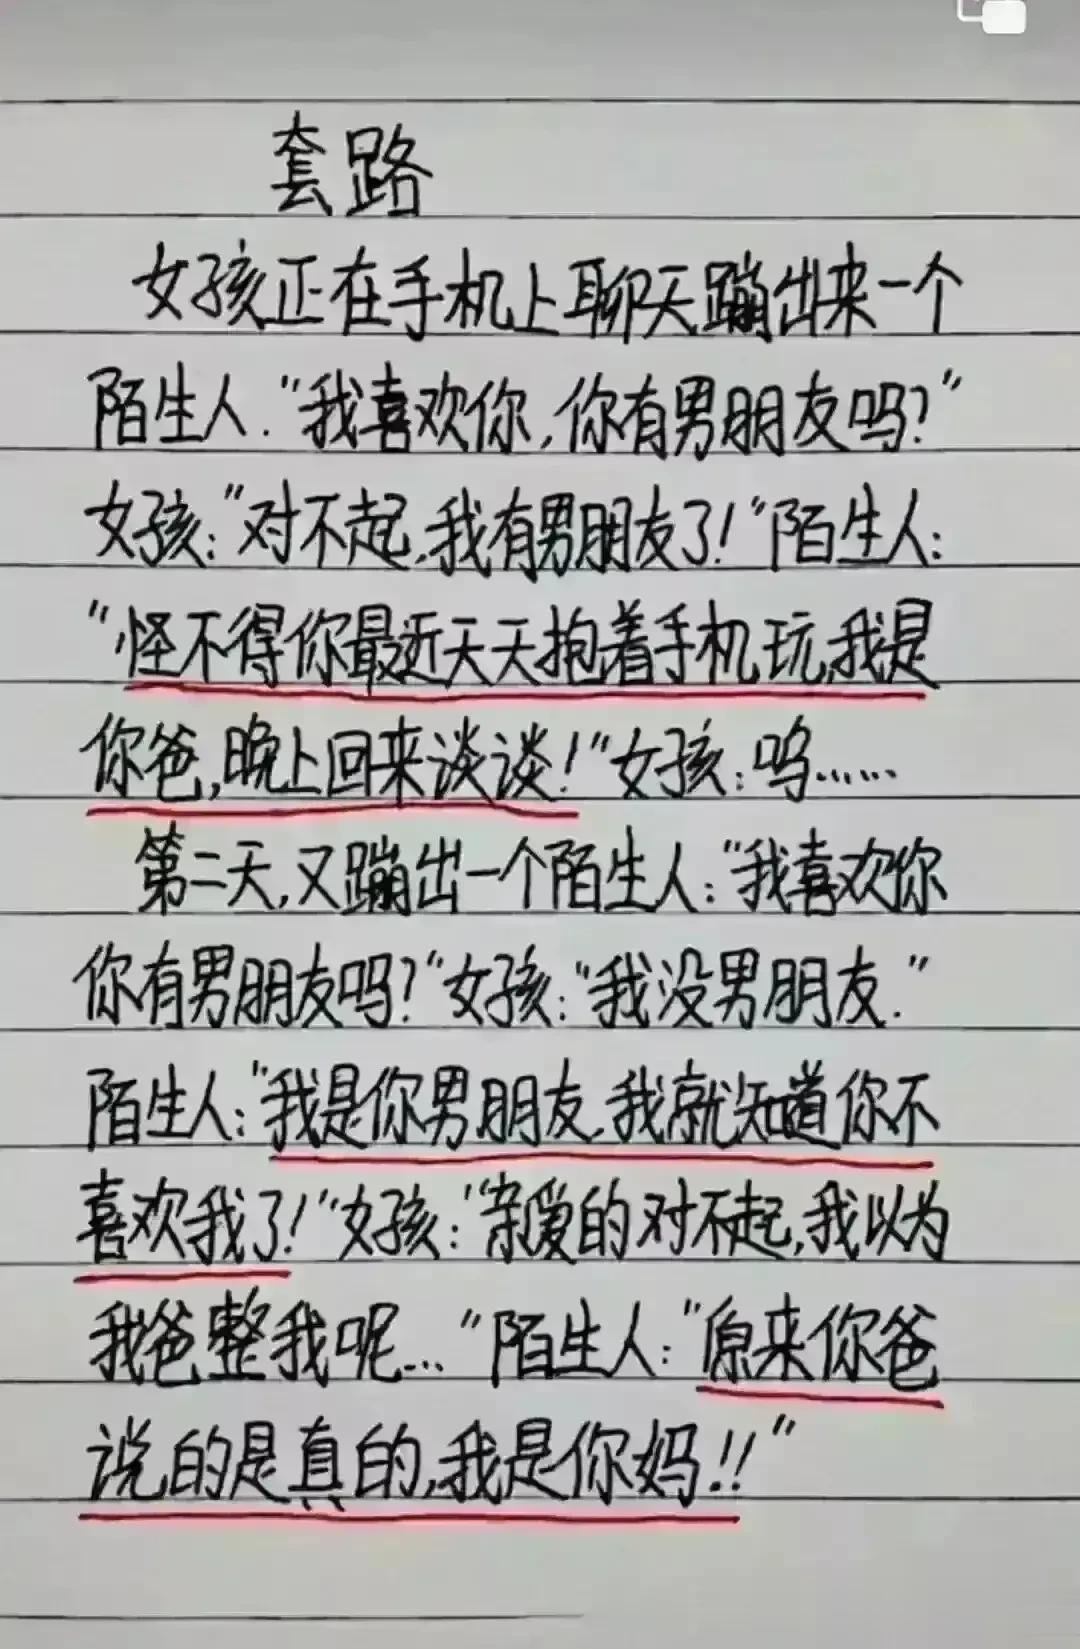 套路
女孩正在手机上聊天蹦出来一个
陌生人:"我喜欢你,你有男朋友吗?"
女孩:"对不起,我有男朋友了!"陌生人:
"怪不得你最近天天抱着手机玩,我是
你爸,晚上回来谈谈!"女孩:呜……
第二天,又蹦出一个陌生人:"我喜欢你
你有男朋友吗?"女孩:"我没男朋友."
陌生人:"我是你男朋友.我就知道你不
喜欢我了!"女孩:"亲爱的对不起,我以为
我爸整我呢..."陌生人:"原来你爸
说的是真的,我是你妈!!"